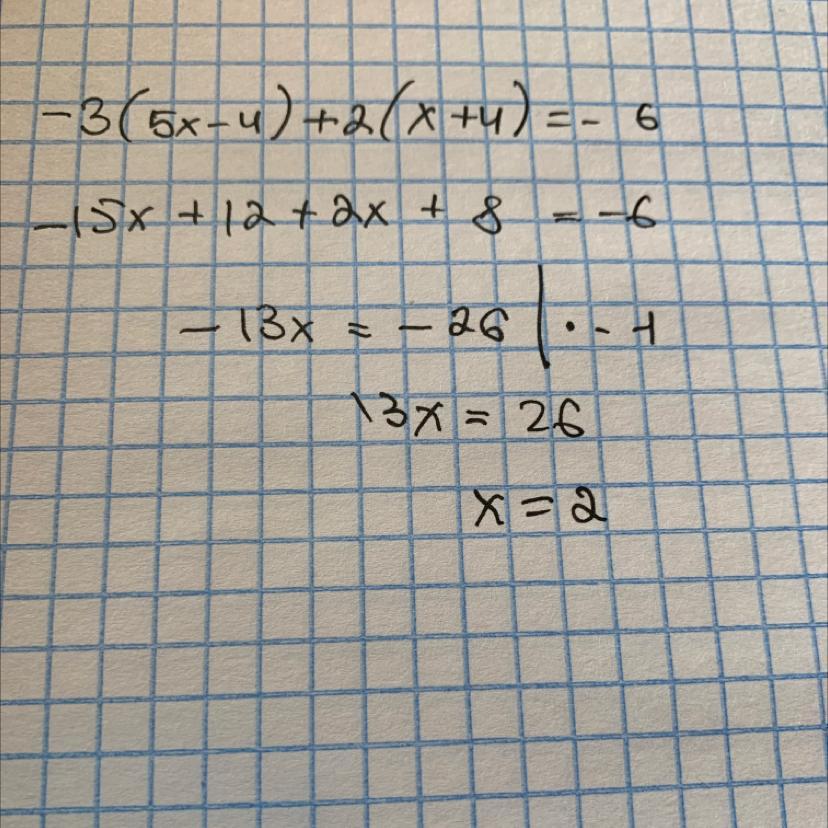 -3(5x-4)+2(x+4)=- 6
-15x+12+2x+8=-6
-13x=-26|·-1
13x=26
x=2